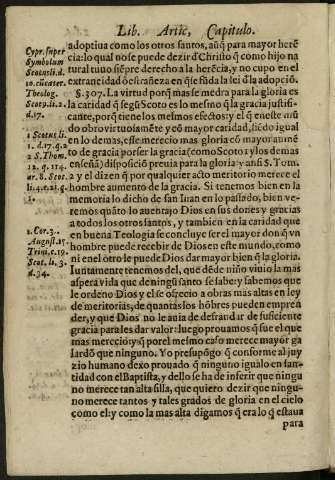 Lib. Artic, Capitulo.
Cypr. super
Symbolum
Scotus li. d.
10. citcater.
Theolog.
Scoto. li. 2.
d. 17.
1 Scotus li.
1. d. 17. q. 2
2 S. Thom.
12. q. 114.
ar. 8. Scot.
li. 4. d. 21. q.
1.
1. Cor. 3.
August. 15.
Trini. c. 19.
Scot. li. 3.
d. 34.
adoptiua como los otros santos, aũq̃ para mayor herẽ
cia: lo qual no se puede dezir d̃ Christo q̃ como hijo na
tural tuuo siẽpre derecho a la herẽcia, y no cupo en el
extranezidad ò estrañeza en q̃ se fũda la lei d̃ la adopciõ.
§. 307. La virtud porq̃ mas se medra para la gloria es
la caridad q̃ segũ Scoto es lo mesmo q̃ la gracia justifi-
cante, porq̃ tiene los mesmos efectos: y el q̃ en este mũ
do obro virtuosamẽte y cõ mayor caridad, siẽdo igual
en lo demas, esse merecio mas gloria cõ mayor aumẽ
to de gracia por ser la gracia (como Scoto i y los demas
enseñã) disposiciõ preuia para la gloria y ansi S. Tom.
2 y el dizen q̃ por qualquier acto meritorio merece el
hombre aumento de la gracia. Si tenemos bien en la
memoria lo dicho de san Iuan en lo passado, bien ve-
remos quãto lo auentajo Dios en sus dones y gracias
a todos los otros santos, y tambien en la caridad que
en buena Teologia se concluye ser el mayor don q̃ vn
hombre puede recebir de Dios en este mundo, como
ni en el otro le puede Dios dar mayor bien q̃ la gloria.
Iuntamente tenemos del, que dẽde niño viuio la mas
aspera vida que de ningũ santo se sabe: y sabemos que
le ordeno Dios y el se ofrecio a obras mas altas en ley
de meritorias, de quantas los hõbres pueden empren
der, y que Dios no le auia de defraudar de suficiente
gracia para les dar valor: luego prouamos q̃ fue el que
mas mercio: y q̃ por el mesmo caso merece mayor ga
lardõ que ninguno. Yo presupõgo q̃ conforme al juy
zio humano dexo prouado q̃ ninguno igualo en san-
tidad con el Baptista, y dello se ha de inferir que ningu
no merece tan alta silla, que quiero dezir que ningu-
no merece tantos y tales grados de gloria en el cielo
como el: y como la mas alta digamos q̃ era lo q̃ estaua
para